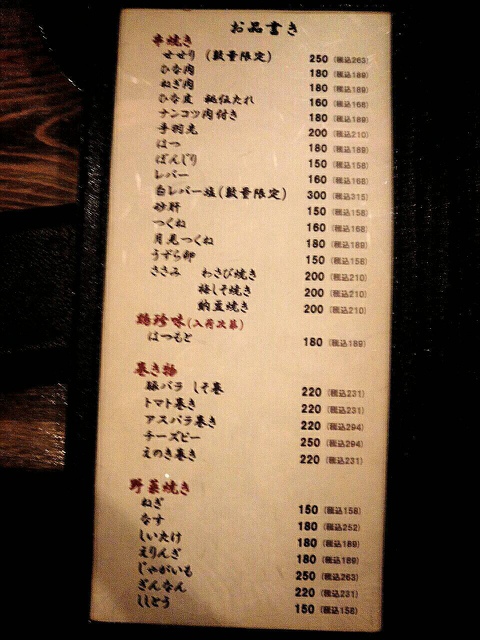 お品書き
串焼き
せせり (数量限定) 250 (税込263)
ひな肉 180 (税込189)
ねぎ肉 180 (税込189)
ひな皮 秘伝たれ 160 (税込168)
ナンコツ肉付き 180 (税込189)
手羽先 200 (税込210)
はつ 180 (税込189)
ぼんじり 150 (税込158)
レバー 160 (税込168)
白レバー塩(数量限定) 300 (税込315)
砂肝 150 (税込158)
つくね 160 (税込168)
月見つくね 180 (税込189)
うずら卵 150 (税込158)
ささみ わさび焼き 200 (税込210)
梅しそ焼き 200 (税込210)
納豆焼き 200 (税込210)
鶏珍味(入荷次第)
はつもと 180 (税込189)
巻き物
豚バラ しそ巻 220 (税込231)
トマト巻き 220 (税込231)
アスパラ巻き 220 (税込294)
チーズピー 250 (税込294)
えのき巻き 220 (税込231)
野菜焼き
ねぎ 150 (税込158)
なす 180 (税込252)
しいたけ 180 (税込189)
えりんぎ 180 (税込189)
じゃがいも 250 (税込263)
ぎんなん 220 (税込231)
ししとう 150 (税込158)